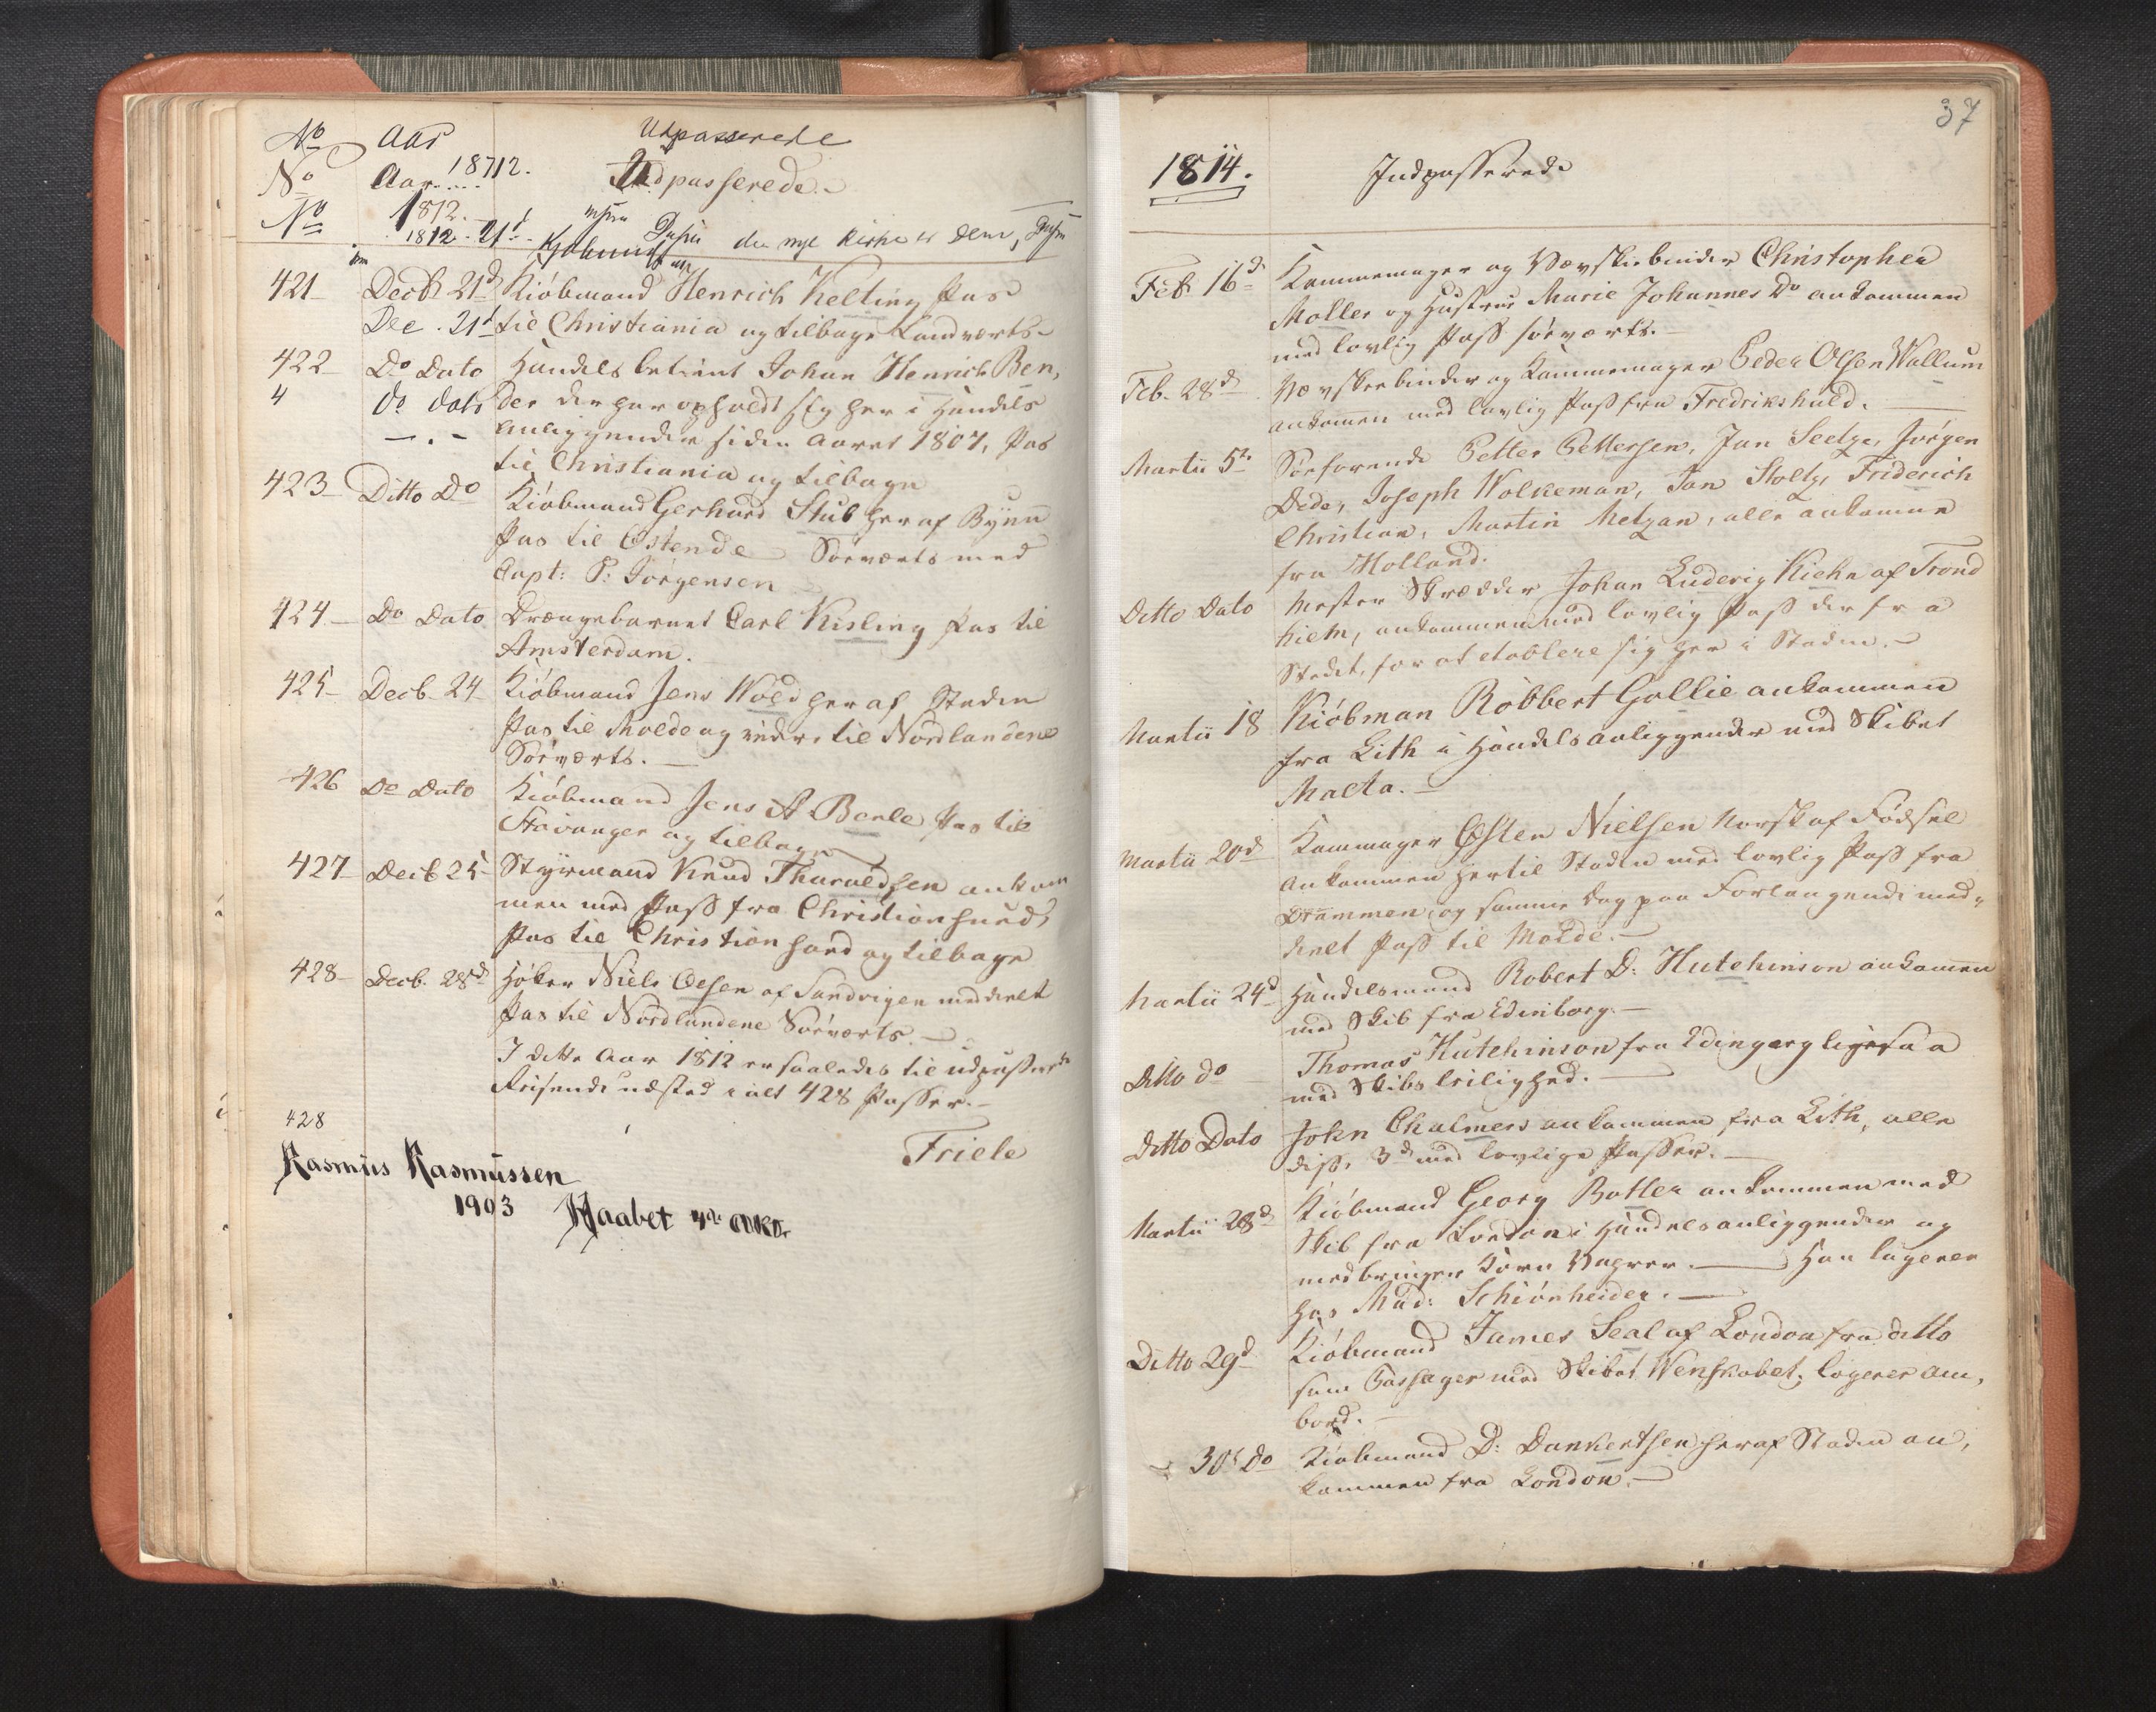 No Aar Udpasserede
No Aar.... 18712. Udpasserede
No 1812.
1812. 21d den nye Kirke er Dem,
421 Decb 21d Kiöbmand Henrich Kelting Pas
Dec. 21d til Christiania og tilbage Landverts
422 Do Dato Handels betient Johan Henrich Ben,
4 do dato der der har opholdt sig her i Handels
Anliggender siden Aaret 1807, Pas
til Christiania og tilbage
423 Ditto Do Kiöbmand Gerhard Stub her af Byen
Pas til Ostende Söeverts med
Capt: P: Jörgensen
424 Do Dato Drængebarnet Carl Kisling Pas til
Amsterdam.
425 Decb. 24 Kiöbmand Jens Wold her af Staden
Pas til Molde og videre til Nordlandene
Söeverts.
426 Do Dato Kiöbmand Jens A Berle Pas til
Stavanger og tilbage
427 Decb 25 Styrmand Knud Tharaldsen ankom
men med Pass fra Christiansund,
Pas til Christiansand og tilbage
428 Decb. 28d Höker Niels Olsen af Sandvigen meddeelt
Pas til Nordlandene Söeverts.
I dette Aar 1812 er saaledes til udpasserede
Reisende udsted i alt 428 Passer.
428
Friele
Rasmus Rasmussen
1903 Haabet 4de
37
1814. Indpasserede
Feb 16d Kammemager og Vævskiebinder Christopher
Moller og Hustrue Marie Johannes Do ankommen
med lovlig Pass söeverts.
Feb. 28d Vævskeebinder og Kammemager Peder Olsen Wallum
ankommen med lovlig Pass fra Fredrikshald.
Martii 5te Söefarende Petter Pettersen, Jan Seetze, Jörgen
Dede, Joseph Wolkeman, Jan Stoltz, Friderich
Christian, Martin Metzan, alle ankomne
fra Holland.
Ditto Dato Mester Skrædder Johan Luderig Kiehn af Trond
hiem, ankommen med lovlig Pass der fra
Stedet, for at etablere sig her i Staden.
Martii 18 Kiöbman Robbert Gollie ankommen
fra Lith i Handels anliggender med Skibet
Malta.
Martii 20d Kammager Østen Nielsen Norsk af Födsel
ankommen hertil Staden med lovlig Pass fra
Drammen, og samme Dag paa Forlangende med,
deelt Pass til Molde.
Martii 24d Handelsmand Robert D: Hutchinson ankommen
med Skib fra Edinborg.
Ditto do Thomas Hutchinson fra Edingerg ligesaa
med Skibs leilighed.
Ditto Dato John Chalmers ankommen fra Lith, alle
disse 3de med lovlige Passer.
Martii 28d Kiöbmand Georg Botler ankommen med
Skib fra London i Handels anliggender og
medbringer Korn Vahrer. Han logerer
hos Mad: Schiönheider.
Ditto 29d Kiöbmand James Seal af London fra ditto
som Passager med Skibet Wenskabet, logerer om,
bord.
30d do Kiöbmand D: Dankertsen her af Staden an,
kommen fra London.